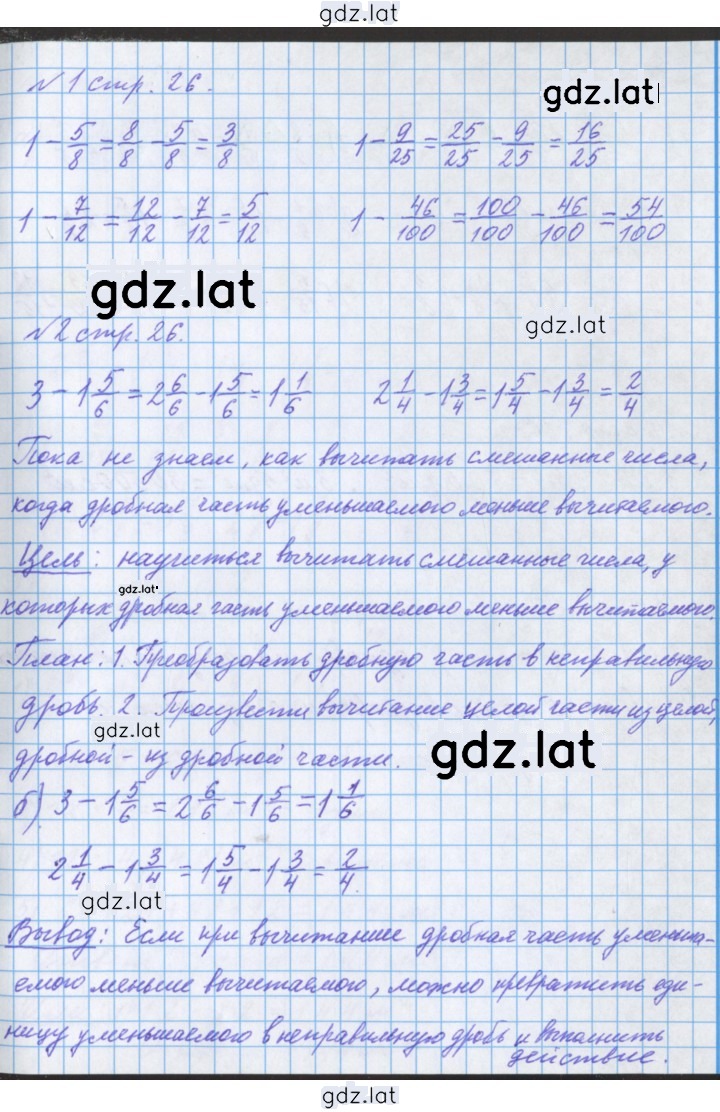 gdz.lat
№1 стр. 26.
gdz.lat
1 - 5/8 = 8/8 - 5/8 = 3/8    1 - 9/25 = 25/25 - 9/25 = 16/25
1 - 7/12 = 12/12 - 7/12 = 5/12    1 - 46/100 = 100/100 - 46/100 = 54/100
gdz.lat
№2 стр. 26.
gdz.lat
3 - 1 5/6 = 2 6/6 - 1 5/6 = 1 1/6    2 1/4 - 1 3/4 = 1 5/4 - 1 3/4 = 2/4
Пока не знаем, как вычитать смешанные числа,
когда дробная часть уменьшаемого меньше вычитаемого.
Цель: научиться вычитать смешанные числа, у
gdz.lat
которых дробная часть уменьшаемого меньше вычитаемого.
План: 1. Преобразовать дробную часть в неправильную
дробь. 2. Произвести вычитание целой части из целой,
gdz.lat
дробной - из дробной части.
gdz.lat
б) 3 - 1 5/6 = 2 6/6 - 1 5/6 = 1 1/6
2 1/4 - 1 3/4 = 1 5/4 - 1 3/4 = 2/4.
gdz.lat
Вывод: Если при вычитание дробная часть уменьша-
емого меньше вычитаемого, можно превратить еди-
ницу уменьшаемого в неправильную дробь и выполнить
действие.
gdz.lat